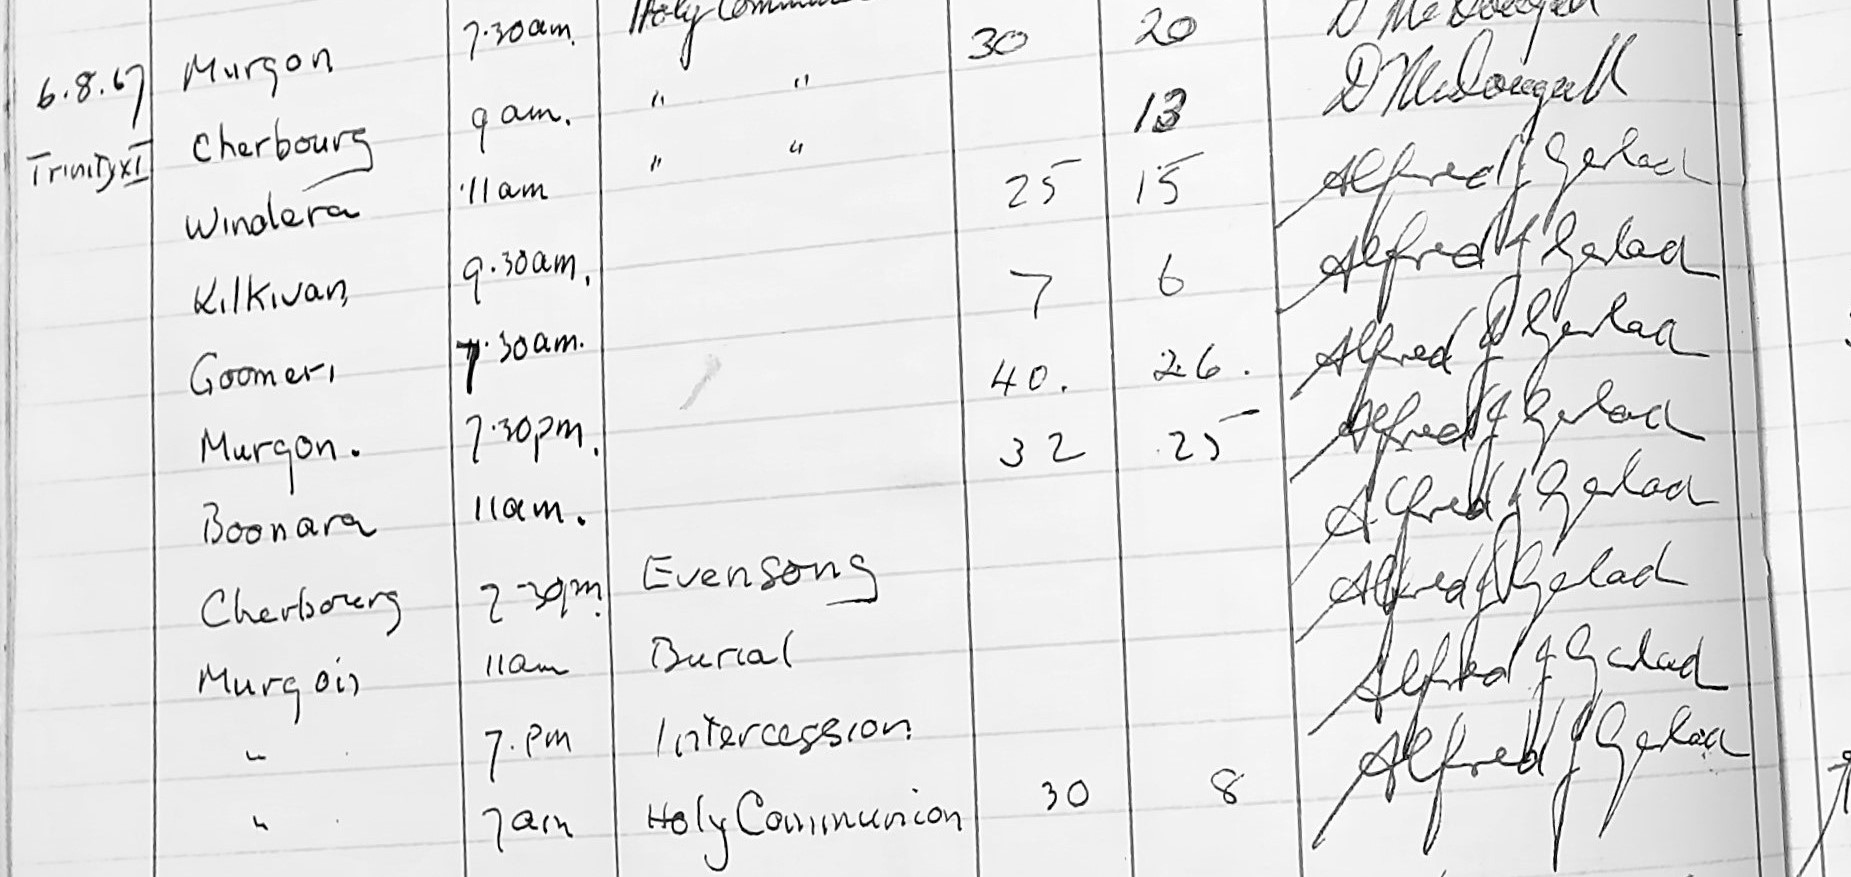 6.8.67 Murgon 7.30am. Holy 30 20 D McDougall
Trinity XI Cherbourg 9am. " " 13 D McDougall
Windera 11am " " 25 15 Alfred J Gerlad
Kilkivan 9.30am. 7 6 Alfred J Gerlad
Goomeri 7.30am. 40. 26. Alfred J Gerlad
Murgon. 7.30pm. 32 25 Alfred J Gerlad
Boonara 11am. Alfred J Gerlad
Cherbourg 7-30pm. Evensong Alfred J Gerlad
Murgon 11am Burial Alfred J Gerlad
" 7.pm Intercession. Alfred J Gerlad
" 7am Holy Communion 30 8